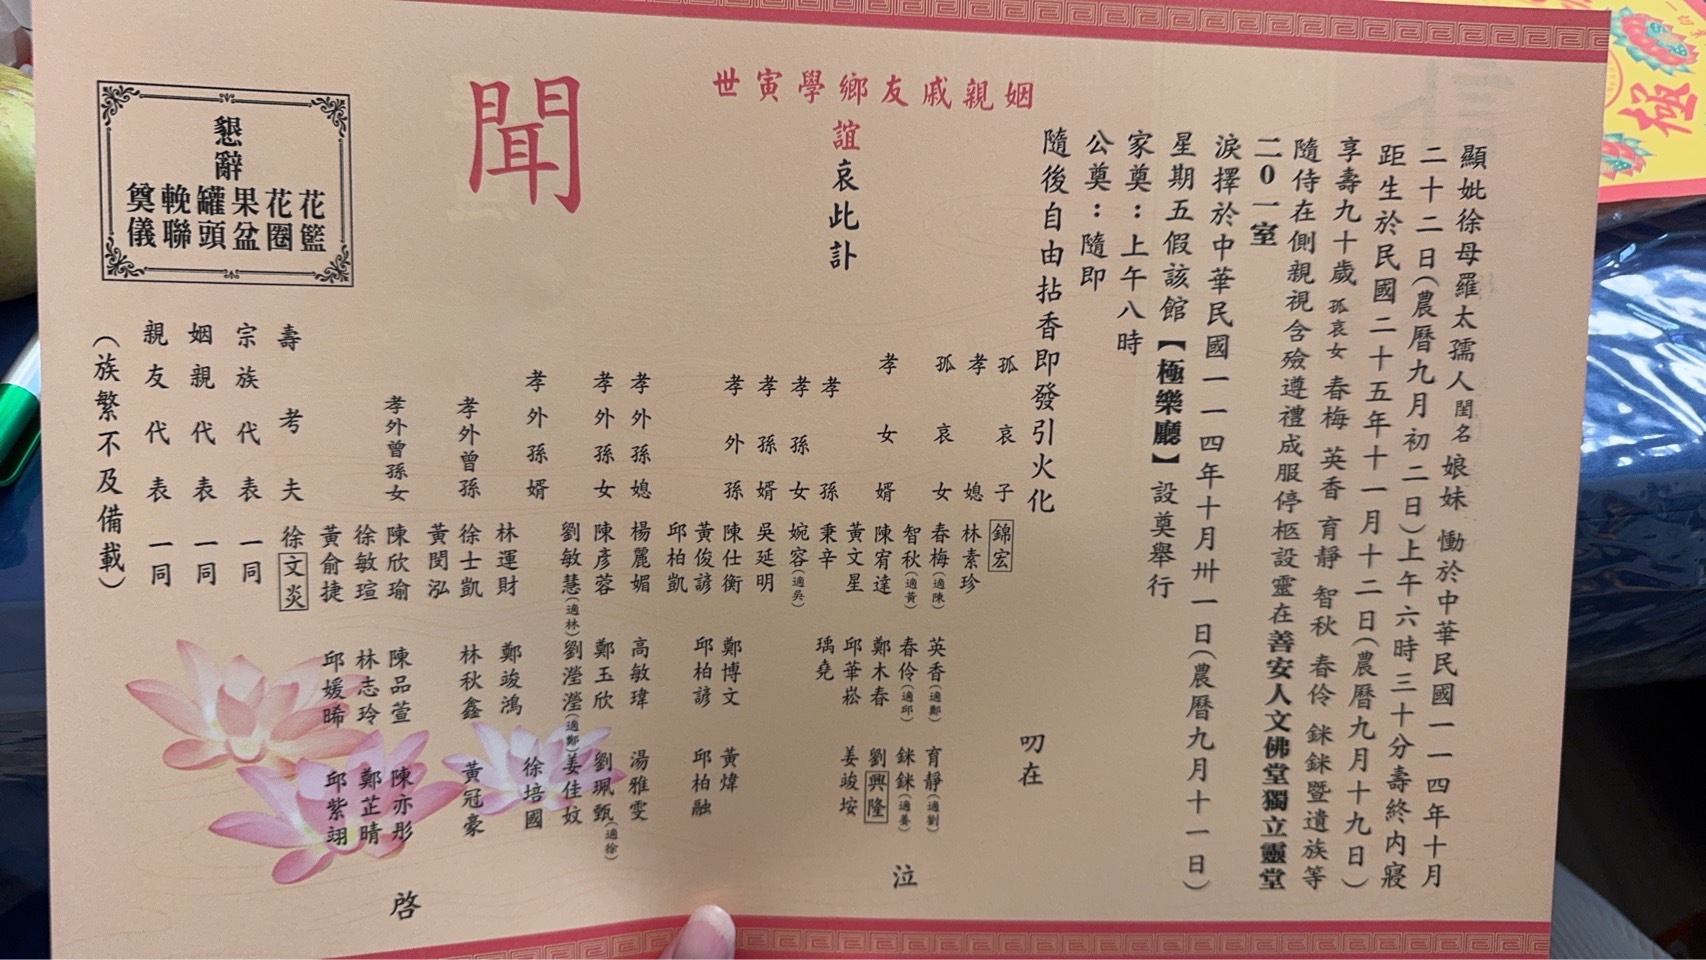 顯妣徐母羅太孺人閨名娘妹 慟於中華民國一一四年十月
二十二日(農曆九月初二日)上午六時三十分壽終內寢
距生於民國二十五年十一月十二日(農曆九月十九日)
享壽九十歲 孤哀女 春梅 英香 育靜 智秋 春伶 銖銖暨遺族等
隨侍在側親視含殮遵禮成服停柩設靈在善安人文佛堂獨立靈堂
二0一室
淚擇於中華民國一一四年十月卅一日(農曆九月十一日)
星期五假該館【極樂廳】設奠舉行
家奠:上午八時
公奠:隨即
隨後自由拈香即發引火化
叨在
姻親戚友鄉學寅世
誼哀此訃
聞
孤哀子 錦宏
孝媳 林素珍
孤哀女 春梅(適陳) 英香(適鄭) 育靜(適劉)
智秋(適黃) 春伶(適邱) 銖銖(適姜)
孝女婿 陳宥達 鄭木春 劉興隆
黃文星 邱華崧 姜竣垵
孝孫 秉辛 瑀堯
孝孫女 婉容(適吳)
孝孫婿 吳延明
孝外孫 陳仕衡 鄭博文 黃煒
黃俊諺 邱柏諺 邱柏融
邱柏凱
孝外孫媳 楊麗媚 高敏瑋 湯雅雯
孝外孫女 陳彥蓉 鄭玉欣 劉珮甄(適徐)
劉敏慧(適林) 劉瀅瀅(適鄭) 姜佳妏
孝外孫婿 林運財 鄭竣鴻 徐培國
孝外曾孫 徐士凱 林秋鑫 黃冠豪
黃閔泓
孝外曾孫女 陳欣瑜 陳品萱 陳亦彤
徐敏瑄 林志玲 鄭芷晴
黃俞捷 邱媛晞 邱紫翊
壽考夫 徐文炎
宗族代表 一同
姻親代表 一同
親友代表 一同
(族繁不及備載)
泣
啓
懇辭
花籃
花圈
果盆
罐頭
輓聯
奠儀
極